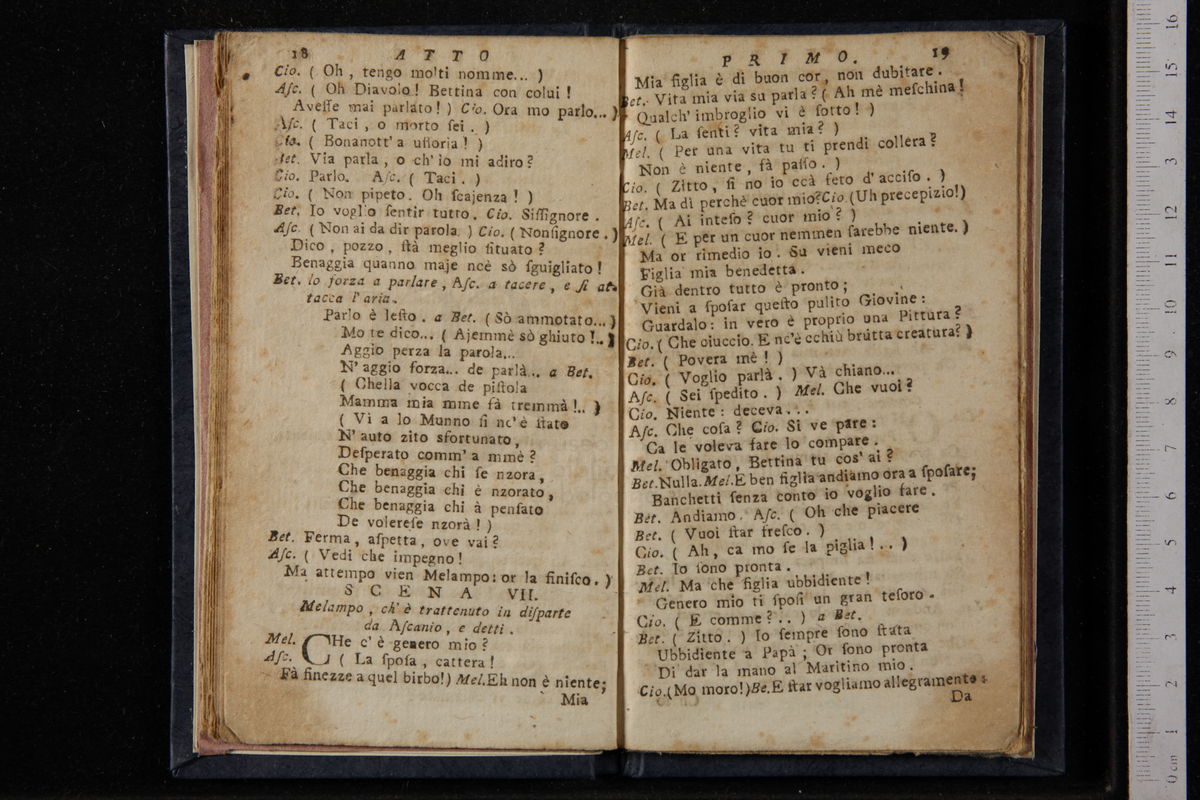 18 ATTO
Cio. ( Oh , tengo molti nomme... )
Aſc. ( Oh Diavolo ! Bettina con colui !
Aveſſe mai parlato ! ) Cio. Ora mo parlo... )
Aſc. ( Taci , o morto ſei . )
Cio. ( Bonanott' a uſſoria ! )
Bet. Via parla , o ch' io mi adiro ?
Cio. Parlo. Aſc. ( Taci . )
Cio. ( Non pipeto. Oh ſcajenza ! )
Bet. Io voglio ſentir tutto. Cio. Siſſignore .
Aſc. ( Non ai da dir parola. ) Cio. ( Nonſignore . )
Dico , pozzo , ſtà meglio ſituato ?
Benaggia quanno maje ncè sò ſguigliato !
Bet. lo forza a parlare , Aſc. a tacere , e ſi at-
tacca l' aria.
Parlo è leſto . a Bet. ( Sò ammotato... )
Mo te dico... ( Ajemmè sò ghiuto !.. )
Aggio perza la parola...
N' aggio forza... de parlà... a Bet.
( Chella vocca de piſtola
Mamma mia mme fà tremmà !.. )
( Vi a lo Munno ſi nc' è ſtato
N' auto zito sfortunato ,
Deſperato comm' a mmè ?
Che benaggia chi ſe nzora ,
Che benaggia chi è nzorato ,
Che benaggia chi à penſato
De volereſe nzorà ! )
Bet. Ferma , aſpetta , ove vai ?
Aſc. ( Vedi che impegno !
Ma attempo vien Melampo : or la finiſco. )
SCENA VII.
Melampo , ch' è trattenuto in diſparte
da Aſcanio , e detti .
Mel. CHe c' è genero mio ?
Aſc. ( La ſpoſa , cattera !
Fà finezze a quel birbo!) Mel.Eh non è niente;
Mia
PRIMO. 19
Mia figlia è di buon cor , non dubitare .
Bet. Vita mia via su parla ? ( Ah mè meſchina !
Qualch' imbroglio vi è ſotto ! )
Aſc. ( La ſenti ? vita mia ? )
Mel. ( Per una vita tu ti prendi collera ?
Non è niente , fà paſſo . )
Cio. ( Zitto , ſi no io ccà ſeto d' acciſo . )
Bet. Ma dì perchè cuor mio? Cio (Uh precepizio!)
Aſc. ( Ai inteſo ? cuor mio ? )
Mel. ( E per un cuor nemmen ſarebbe niente. )
Ma or rimedio io . Su vieni meco
Figlia mia benedetta .
Già dentro tutto è pronto ;
Vieni a ſpoſar queſto pulito Giovine :
Guardalo : in vero è proprio una Pittura ?
Cio. ( Che ciuccio. E nc'è cchiù brutta creatura? )
Bet. ( Povera mè ! )
Cio. ( Voglio parlà . ) Và chiano...
Aſc. ( Sei ſpedito . ) Mel. Che vuoi ?
Cio. Niente : deceva . . .
Aſc. Che coſa ? Cio. Si ve pare :
Ca le voleva fare lo compare .
Mel. Obligato , Bettina tu cos' ai ?
Bet.Nulla.Mel.E ben figlia andiamo ora a ſpoſare;
Banchetti ſenza conto io voglio fare .
Bet. Andiamo . Aſc. ( Oh che piacere
Bet. ( Vuoi ſtar freſco . )
Cio. ( Ah , ca mo ſe la piglia ! . . )
Bet. Io ſono pronta .
Mel. Ma che figlia ubbidiente !
Genero mio ti ſpoſi un gran teſoro .
Cio. ( E comme ? . . ) a Bet.
Bet. ( Zitto . ) Io ſempre ſono ſtata
Ubbidiente a Papà ; Or ſono pronta
Di dar la mano al Maritino mio .
Cio.(Mo moro!)Be.E ſtar vogliamo allegramente :
Da
16
15
14
13
12
11
10
9
8
7
6
5
4
3
2
1
0 cm